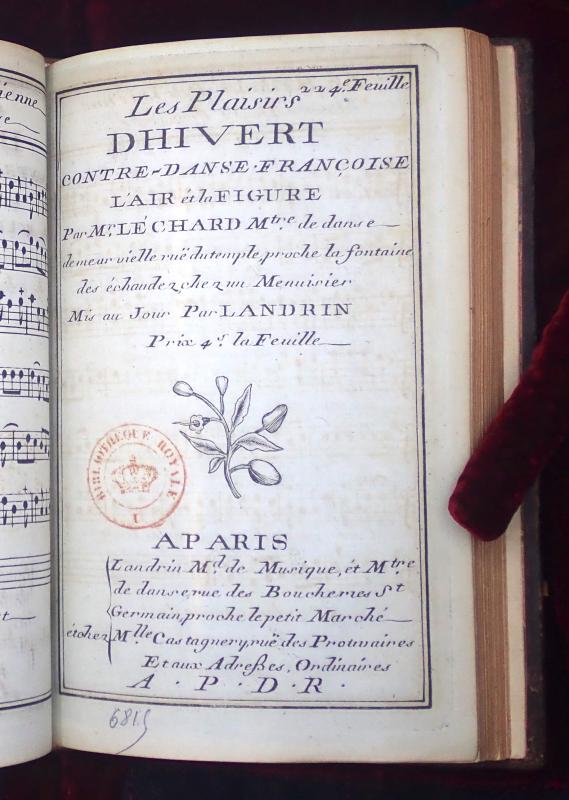 ienne
224.e Feuille
Les Plaisirs
DHIVERT
CONTRE-DANSE·FRANÇOISE
L'AIR ét la FIGURE
Par Mr. LÉCHARD Mtre de danse
demeur vielle ruë du temple, proche la fontaine
des échaudez, chez un Menuisier
Mis au Jour Par LANDRIN
Prix 4s. la Feuille
BIBLIOTHEQUE ROYALE
I
A PARIS
Landrin Md. de Musique, ét Mtre
de danse, rue des Boucheries St
Germain, proche le petit Marché
étchez Mlle Castagnery, ruë des Prouvaires
Et aux Adreßes, Ordinaires
A · P · D · R ·